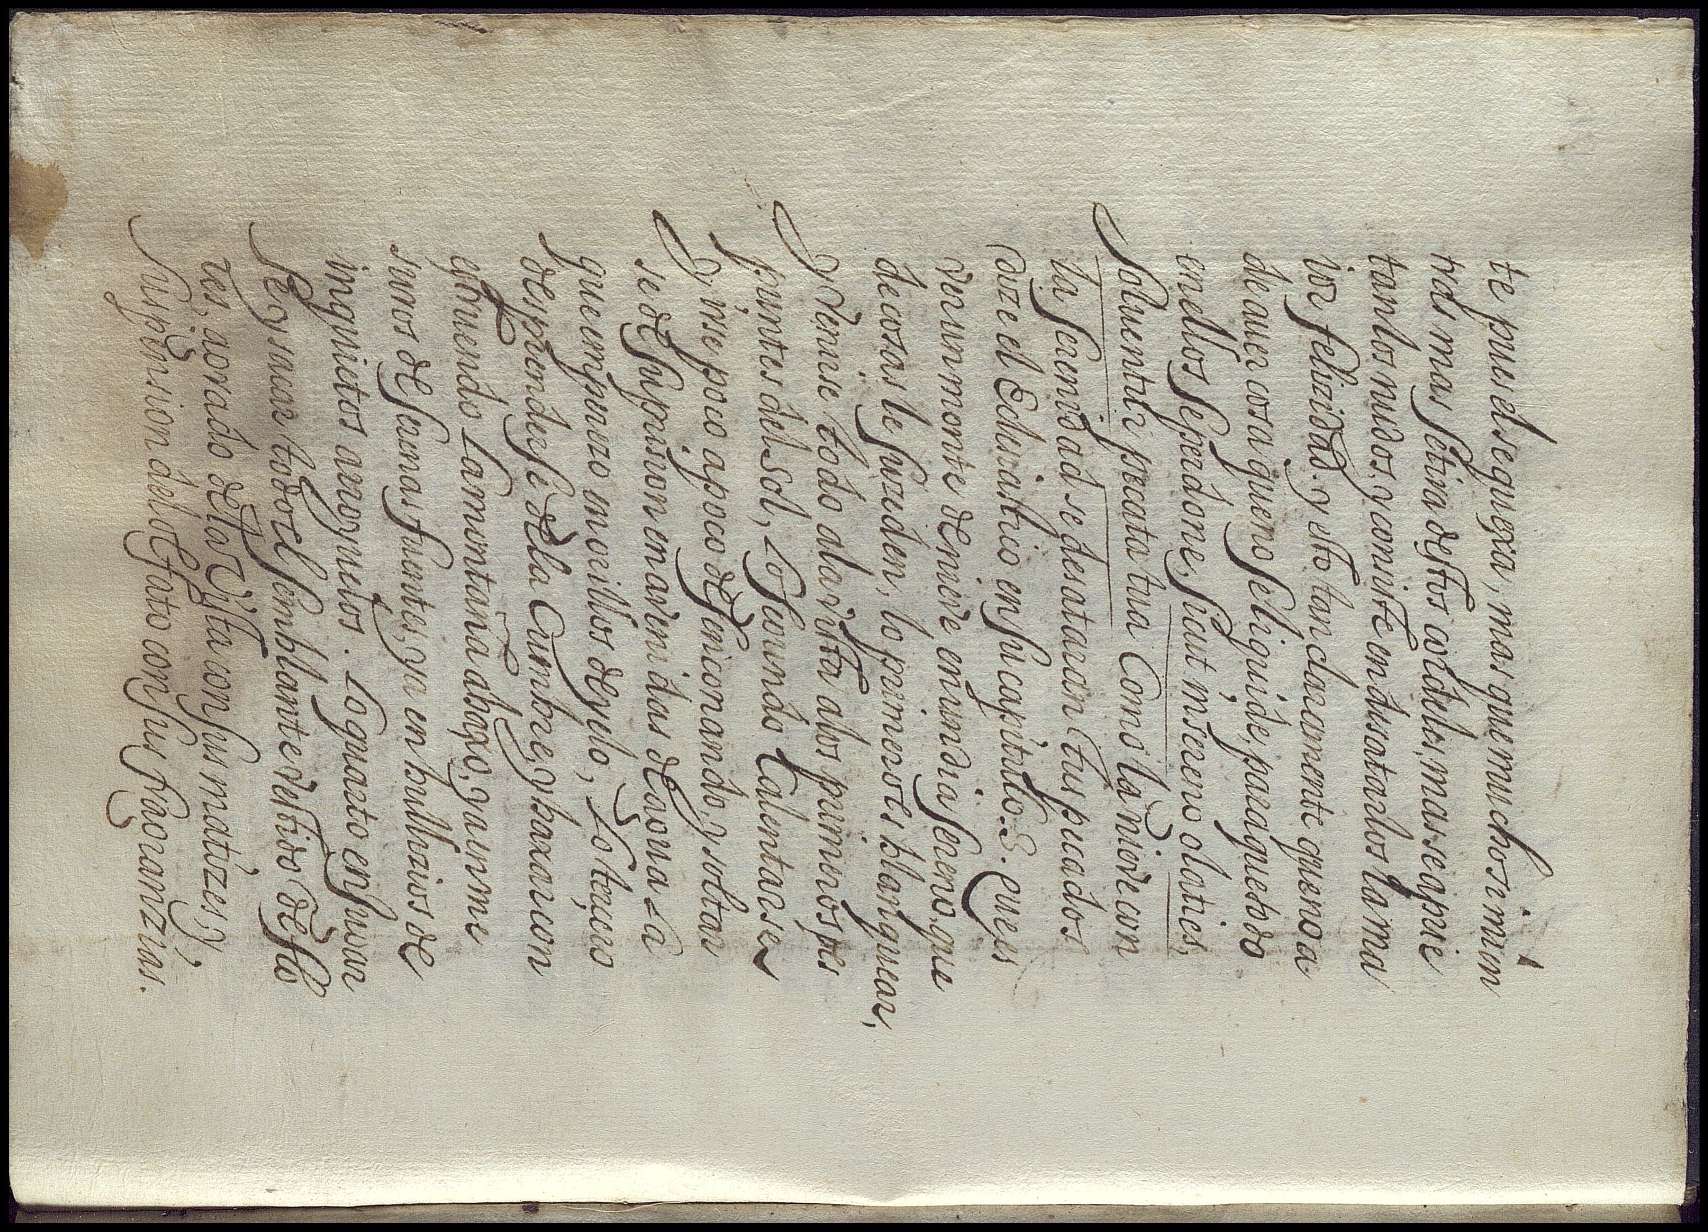 te pues el se quexa, mas que muchos rinun
tds mas se tira destos cordeles, mas se aprie
tan los nudos, y consiste en desatarlos la ma
ior felizidad. y esto tan claramente que no a
de auer cosa que no se liquide, para que todo
en ellos se perdone, sicut in sereno glaties,
soluentur pecata tua Como la nieve con
la serenidad se desataran tus pecados
dize el Eclesiastico en su capitulo. 3. Que es
ver un monte de nieve en un dia sereno, que
de cosas le suzeden, lo primero es blanquear,
y verse todo a la vista a los primeros pes
puntes del sol, Lo segundo Calentarse
y irse poco a poco desmoronando, y soltar
se de su prission en avenidas de agua La
que empezo in orillos de yelo, Lo terzero
desprenderse de la Cumbre, y baxar con
estruendo La montaña abaxo, ya en me
suras de serenas fuentes, ya en bullizios de
inquietos arroyuelos. Lo quarto enjugar
se y sacar todo el semblante vestido de flo
res, agrado de la vista con sus matizes, y,
suspension del olfato con sus fragranzias.